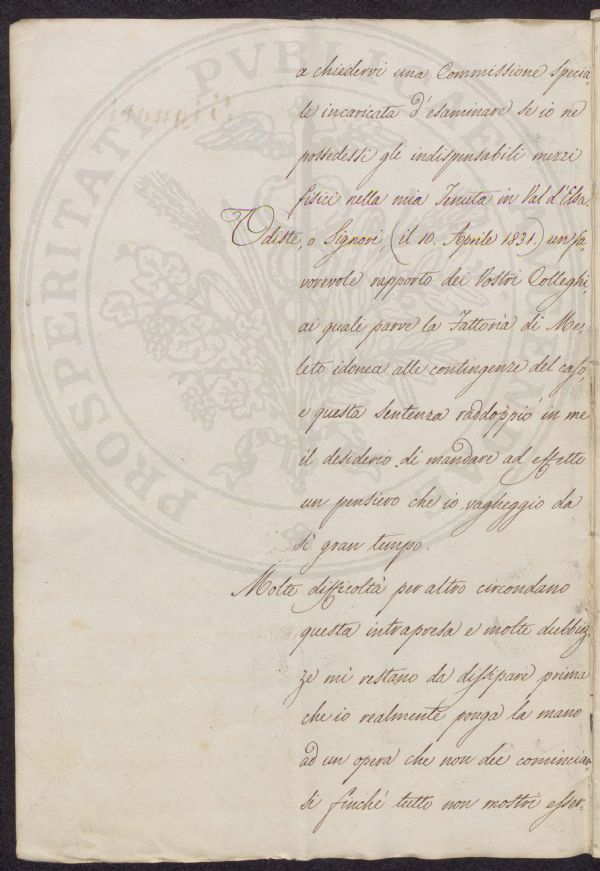 PROSPERITATI PUBLICAE
a chiedervi una Commissione specia-
le incaricata d'esaminare se io ne
possedessi gli indispensabili mezzi
fisici nella mia Tenuta in Val d'Elsa.
Udiste, o Signori, (il 10. Aprile 1831.) un fa-
vorevole rapporto dei Vostri Colleghi,
ai quali parve la Fattoria di Me-
leto idonea alle contingenze del caso,
e questa sentenza raddoppiò in me
il desiderio di mandare ad effetto
un pensiero che io vagheggio da
sì gran tempo.
Molte difficoltà per altro circondano
questa intrapresa e molte dubbiez-
ze mi restano da dissipare prima
che io realmente ponga la mano
ad un opera che non dee cominciar-
si finchè tutto non mostri esser-